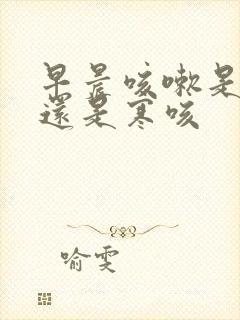 早晨咳嗽是
還是寒咳
喻雯